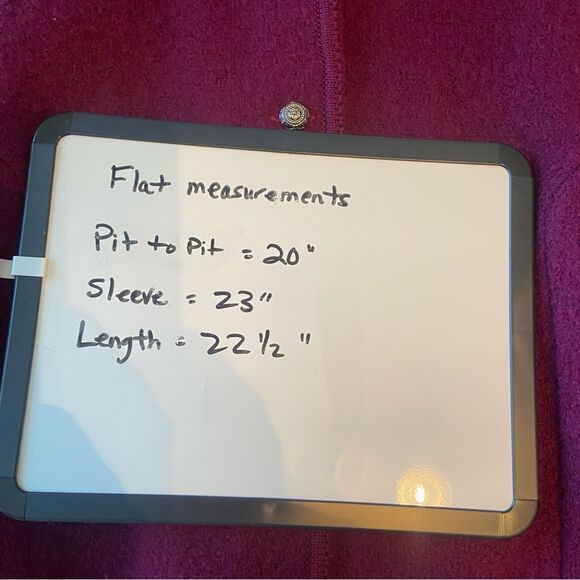 Flat measurements
Pit to Pit = 20"
Sleeve = 23"
Length = 22 1/2 "